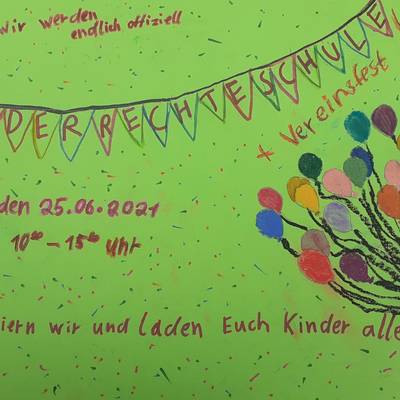 wir werden
endlich offiziell
DERRECHTESCHULE
+ Vereinsfest
den 25.06.2021
10⁰⁰ - 15⁰⁰ Uhr
iern wir und laden Euch Kinder alle